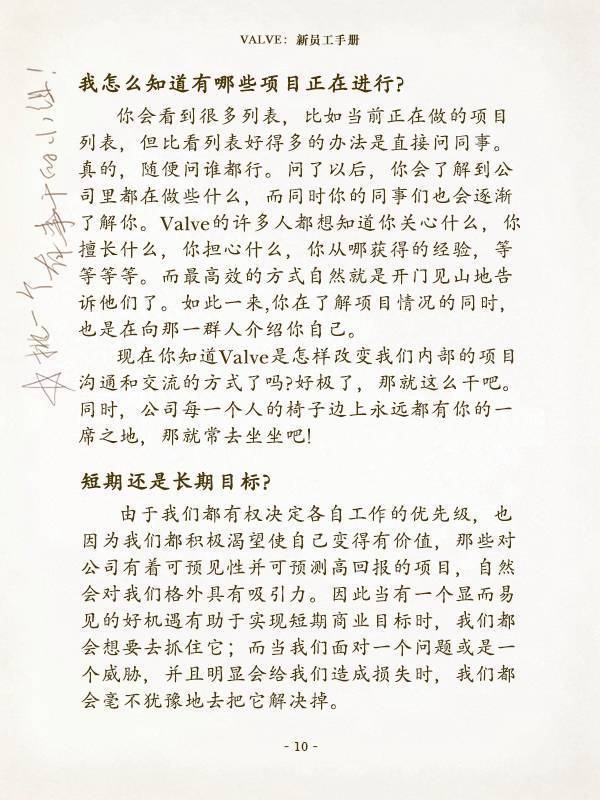 VALVE：新员工手册
我怎么知道有哪些项目正在进行?
你会看到很多列表，比如当前正在做的项目
列表，但比看列表好得多的办法是直接问同事。
真的，随便问谁都行。问了以后，你会了解到公
司里都在做些什么，而同时你的同事们也会逐渐
了解你。Valve的许多人都想知道你关心什么，你
擅长什么，你担心什么，你从哪获得的经验，等
等等等。而最高效的方式自然就是开门见山地告
诉他们了。如此一来,你在了解项目情况的同时，
也是在向那一群人介绍你自己。
现在你知道Valve是怎样改变我们内部的项目
沟通和交流的方式了吗?好极了，那就这么干吧。
同时，公司每一个人的椅子边上永远都有你的一
席之地，那就常去坐坐吧!
挑一个
短期还是长期目标?
由于我们都有权决定各自工作的优先级，也
因为我们都积极渴望使自己变得有价值，那些对
公司有着可预见性并可预测高回报的项目，自然
会对我们格外具有吸引力。因此当有一个显而易
见的好机遇有助于实现短期商业目标时，我们都
会想要去抓住它；而当我们面对一个问题或是一
个威胁，并且明显会给我们造成损失时，我们都
会毫不犹豫地去把它解决掉。
- 10 -